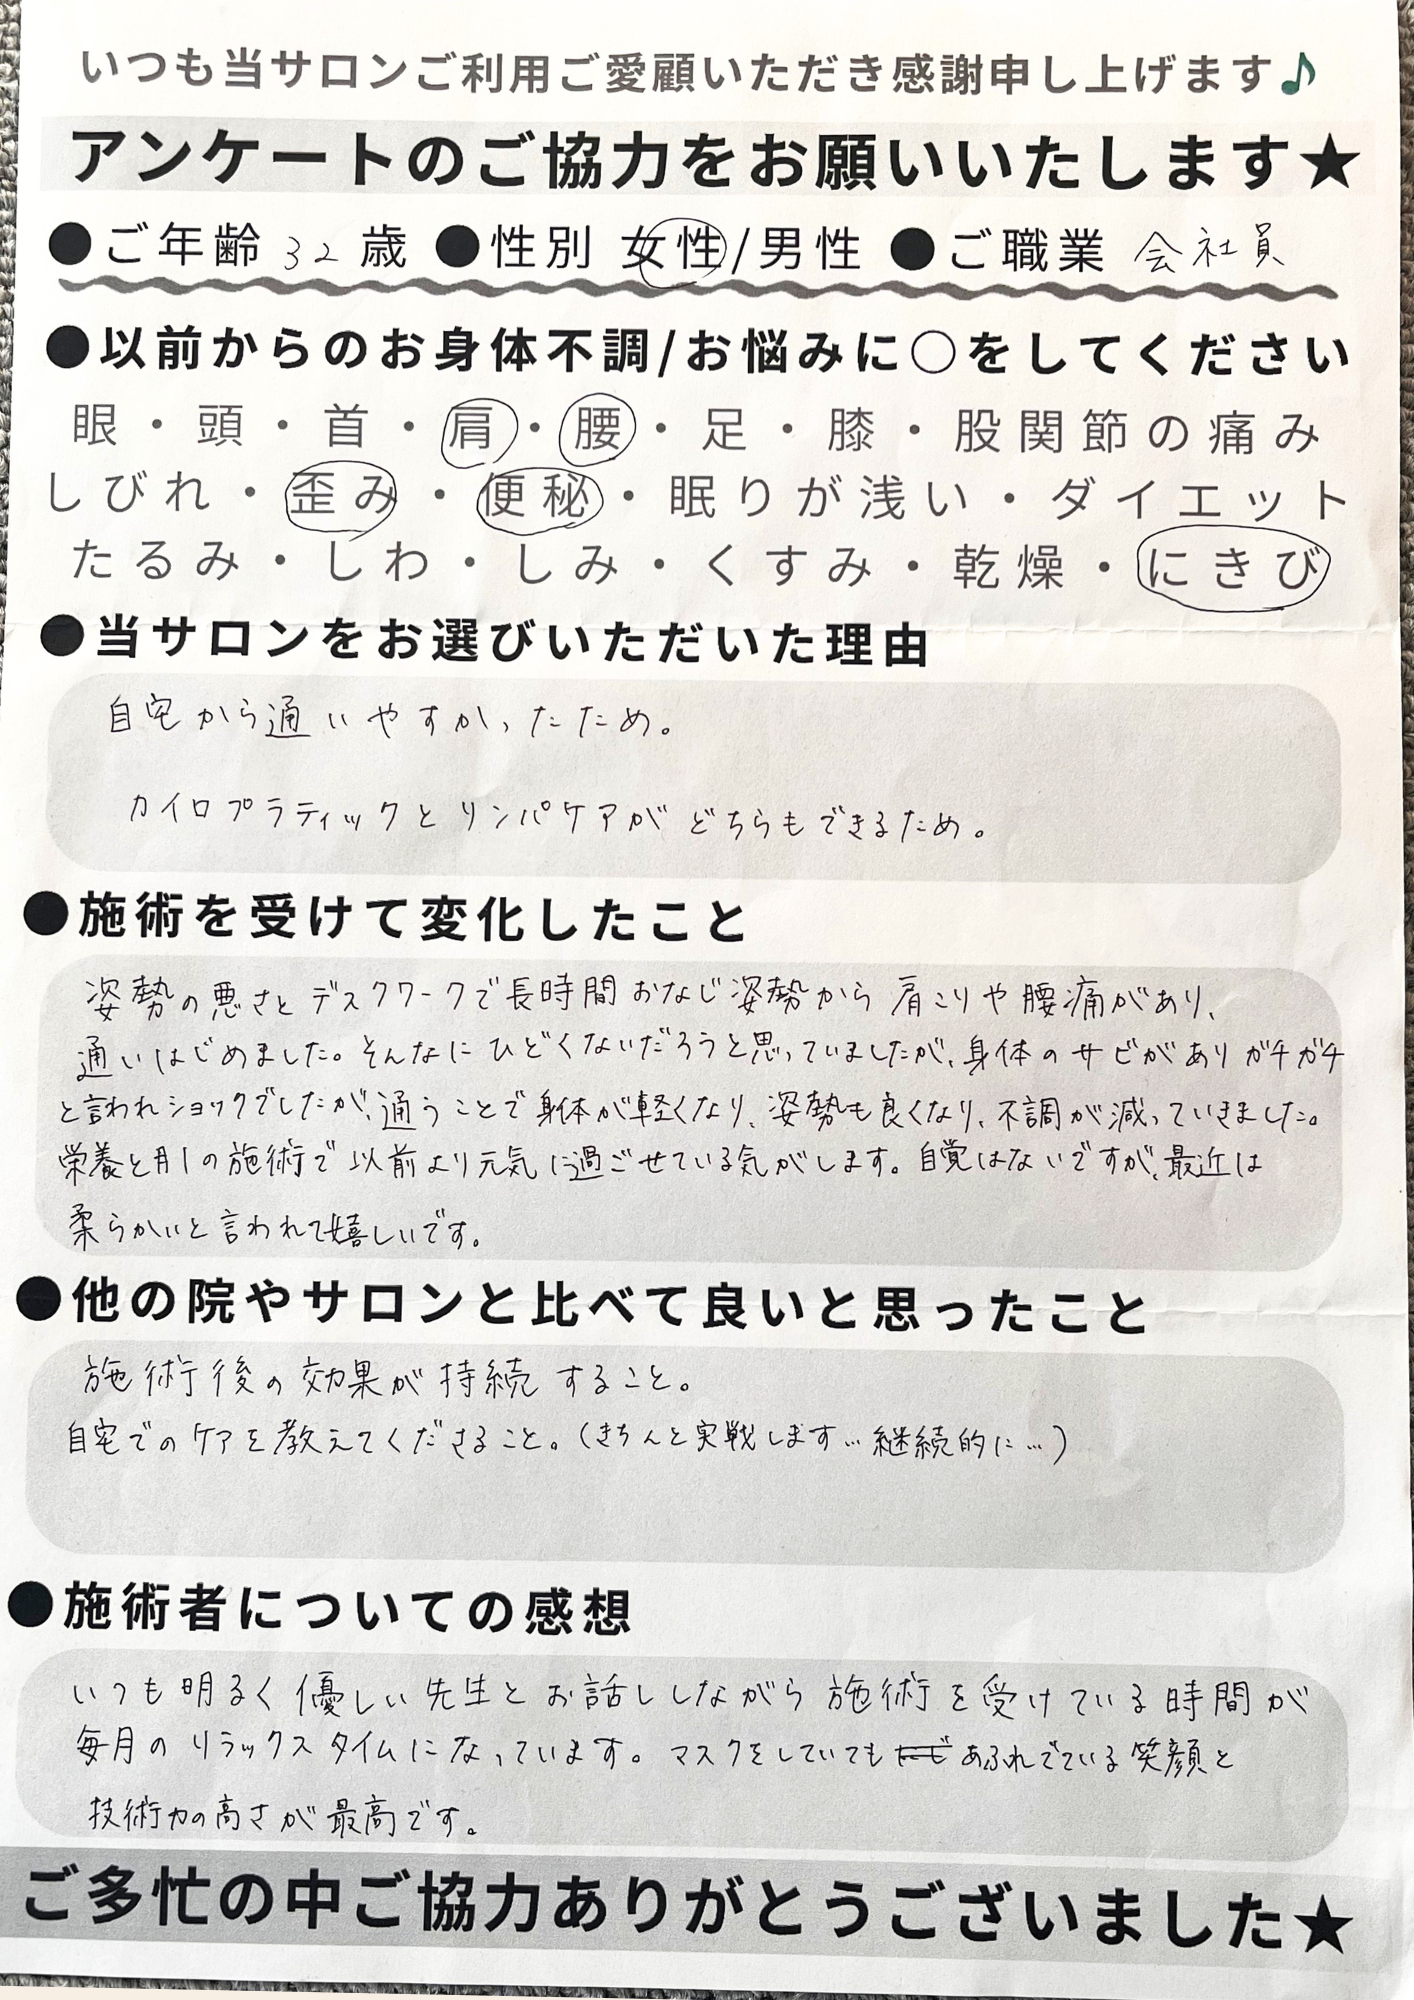 いつも当サロンご利用ご愛顧いただき感謝申し上げます♪
アンケートのご協力をお願いいたします★
●ご年齢 32 歳 ●性別 女性/男性 ●ご職業 会社員
●以前からのお身体不調/お悩みに○をしてください
眼・頭・首・肩・腰・足・膝・股関節の痛み
しびれ・歪み・便秘・眠りが浅い・ダイエット
たるみ・しわ・しみ・くすみ・乾燥・にきび
●当サロンをお選びいただいた理由
自宅から通いやすかったため。
カイロプラティックとリンパケアがどちらもできるため。
●施術を受けて変化したこと
姿勢の悪さとデスクワークで長時間おなじ姿勢から肩こりや腰痛があり、
通いはじめました。そんなにひどくないだろうと思っていましたが、身体のサビがありガチガチ
と言われショックでしたが、通うことで身体が軽くなり、姿勢も良くなり、不調が減っていきました。
栄養と月1の施術で以前より元気に過ごせている気がします。自覚はないですが、最近は
柔らかいと言われて嬉しいです。
●他の院やサロンと比べて良いと思ったこと
施術後の効果が持続すること。
自宅でのケアを教えてくださること。(きちんと実戦します…継続的に…)
●施術者についての感想
いつも明るく優しい先生とお話ししながら施術を受けている時間が
毎月のリラックスタイムになっています。マスクをしていてもあふれでている笑顔と
技術力の高さが最高です。
ご多忙の中ご協力ありがとうございました★